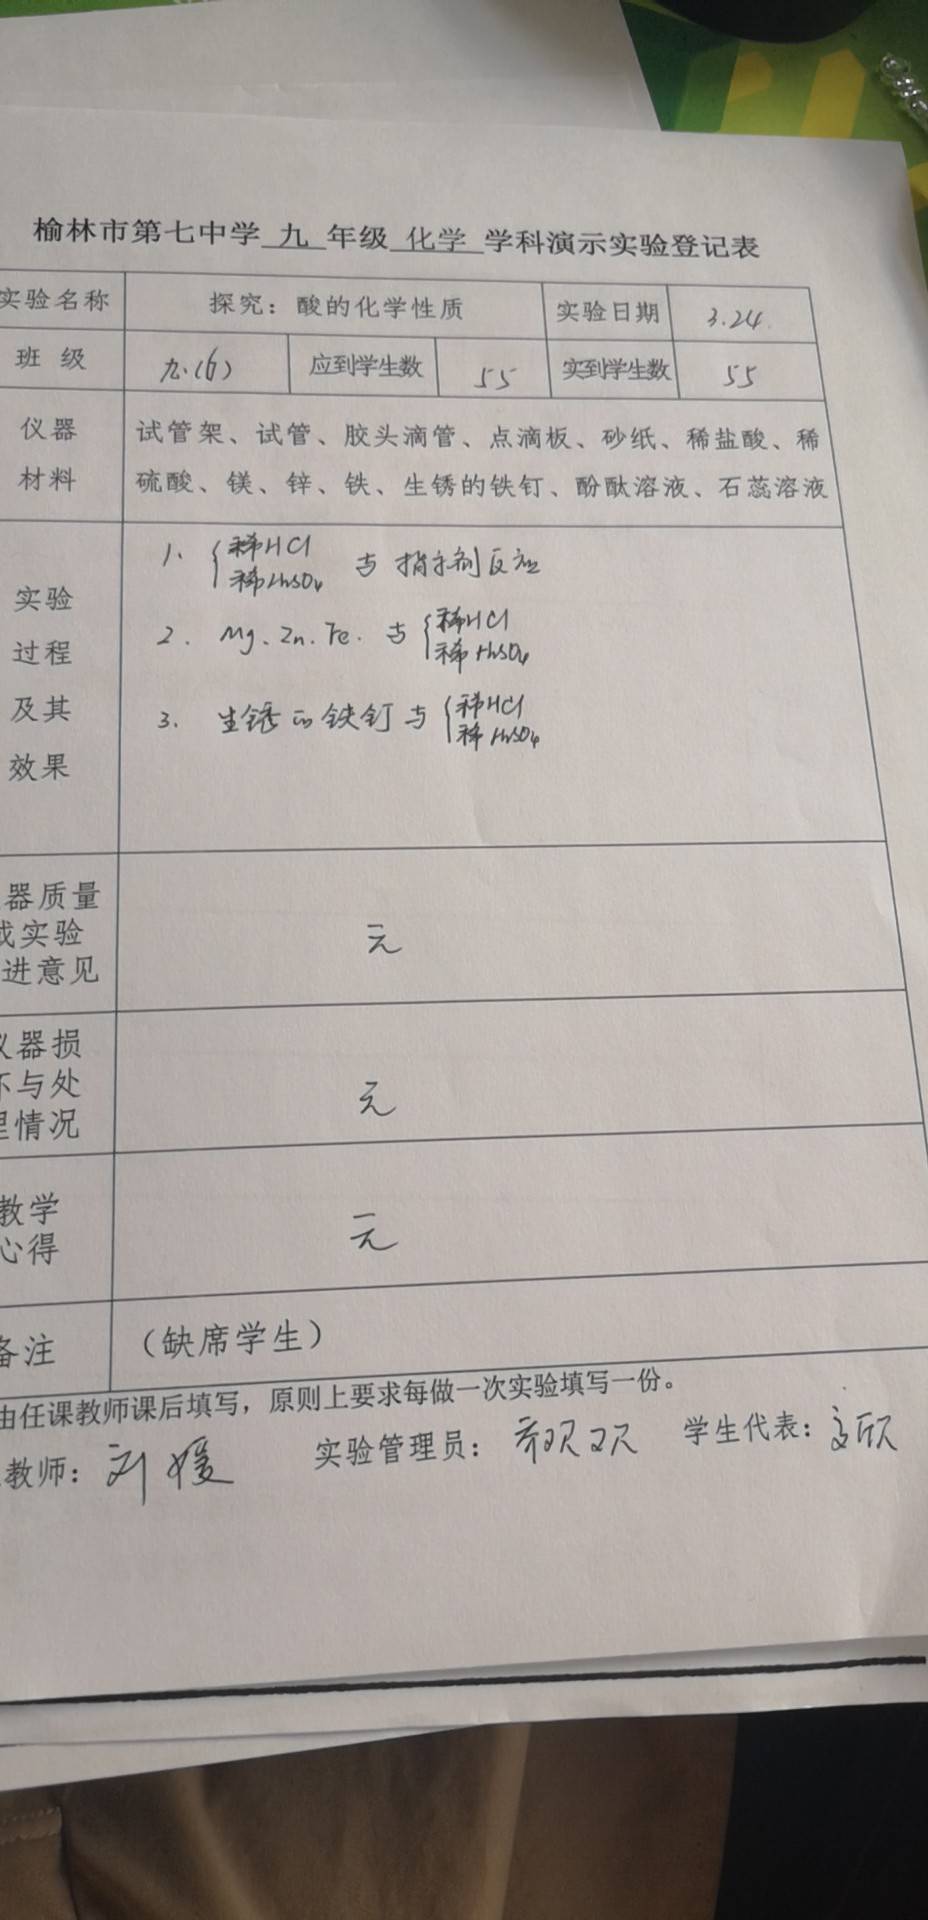 榆林市第七中学 九 年级 化学 学科演示实验登记表
实验名称 探究：酸的化学性质 实验日期 3.24.
班 级 九.(6) 应到学生数 55 实到学生数 55
仪器 试管架、试管、胶头滴管、点滴板、砂纸、稀盐酸、稀
材料 硫酸、镁、锌、铁、生锈的铁钉、酚酞溶液、石蕊溶液
实验
过程
及其
效果
1、{稀HCl
稀H₂SO₄ 与指示剂反应
2. Mg、Zn、Fe. 与{稀HCl
稀H₂SO₄
3. 生锈的铁钉与{稀HCl
稀H₂SO₄
器质量
或实验
进意见
无
仪器损
坏与处
理情况
无
教学
心得
无
备注 （缺席学生）
由任课教师课后填写，原则上要求每做一次实验填写一份。
教师：刘媛 实验管理员： 学生代表：